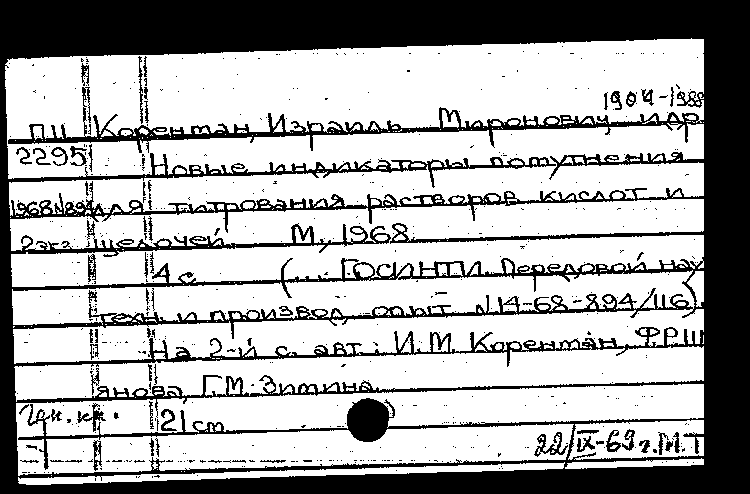 1904-1988
П11 Коренман, Израиль Миронович и др.
2295 Новые индикаторы помутнения
1968 N894 для титрования растворов кислот и
2 экз щелочей. М., 1968.
4 с. (... ГОСИНТИ. Передовой нау
техн. и производ. опыт N 14-68-894/116).
На 2-й с. авт.: И.М. Коренман, Ф.Р. Ш
янова, Г.М. Зимина.
21 см.
22/IX-69 г. М.Т